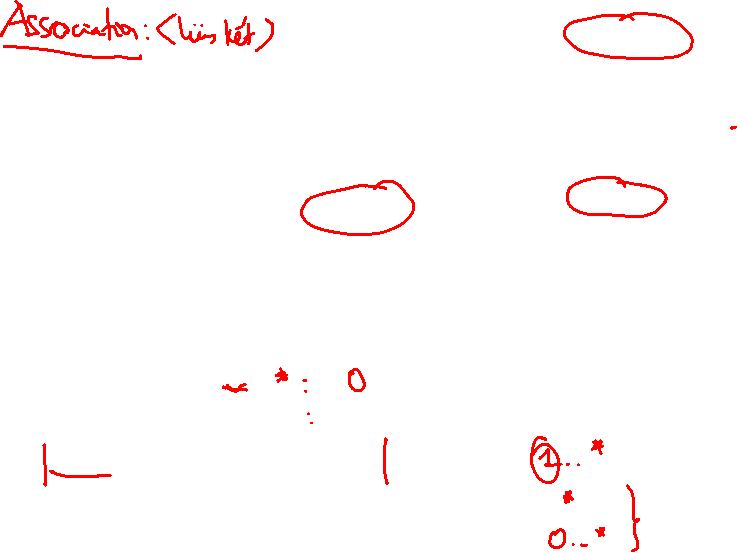 Association: (liên kết)
* : 0
1...*
*
0...*